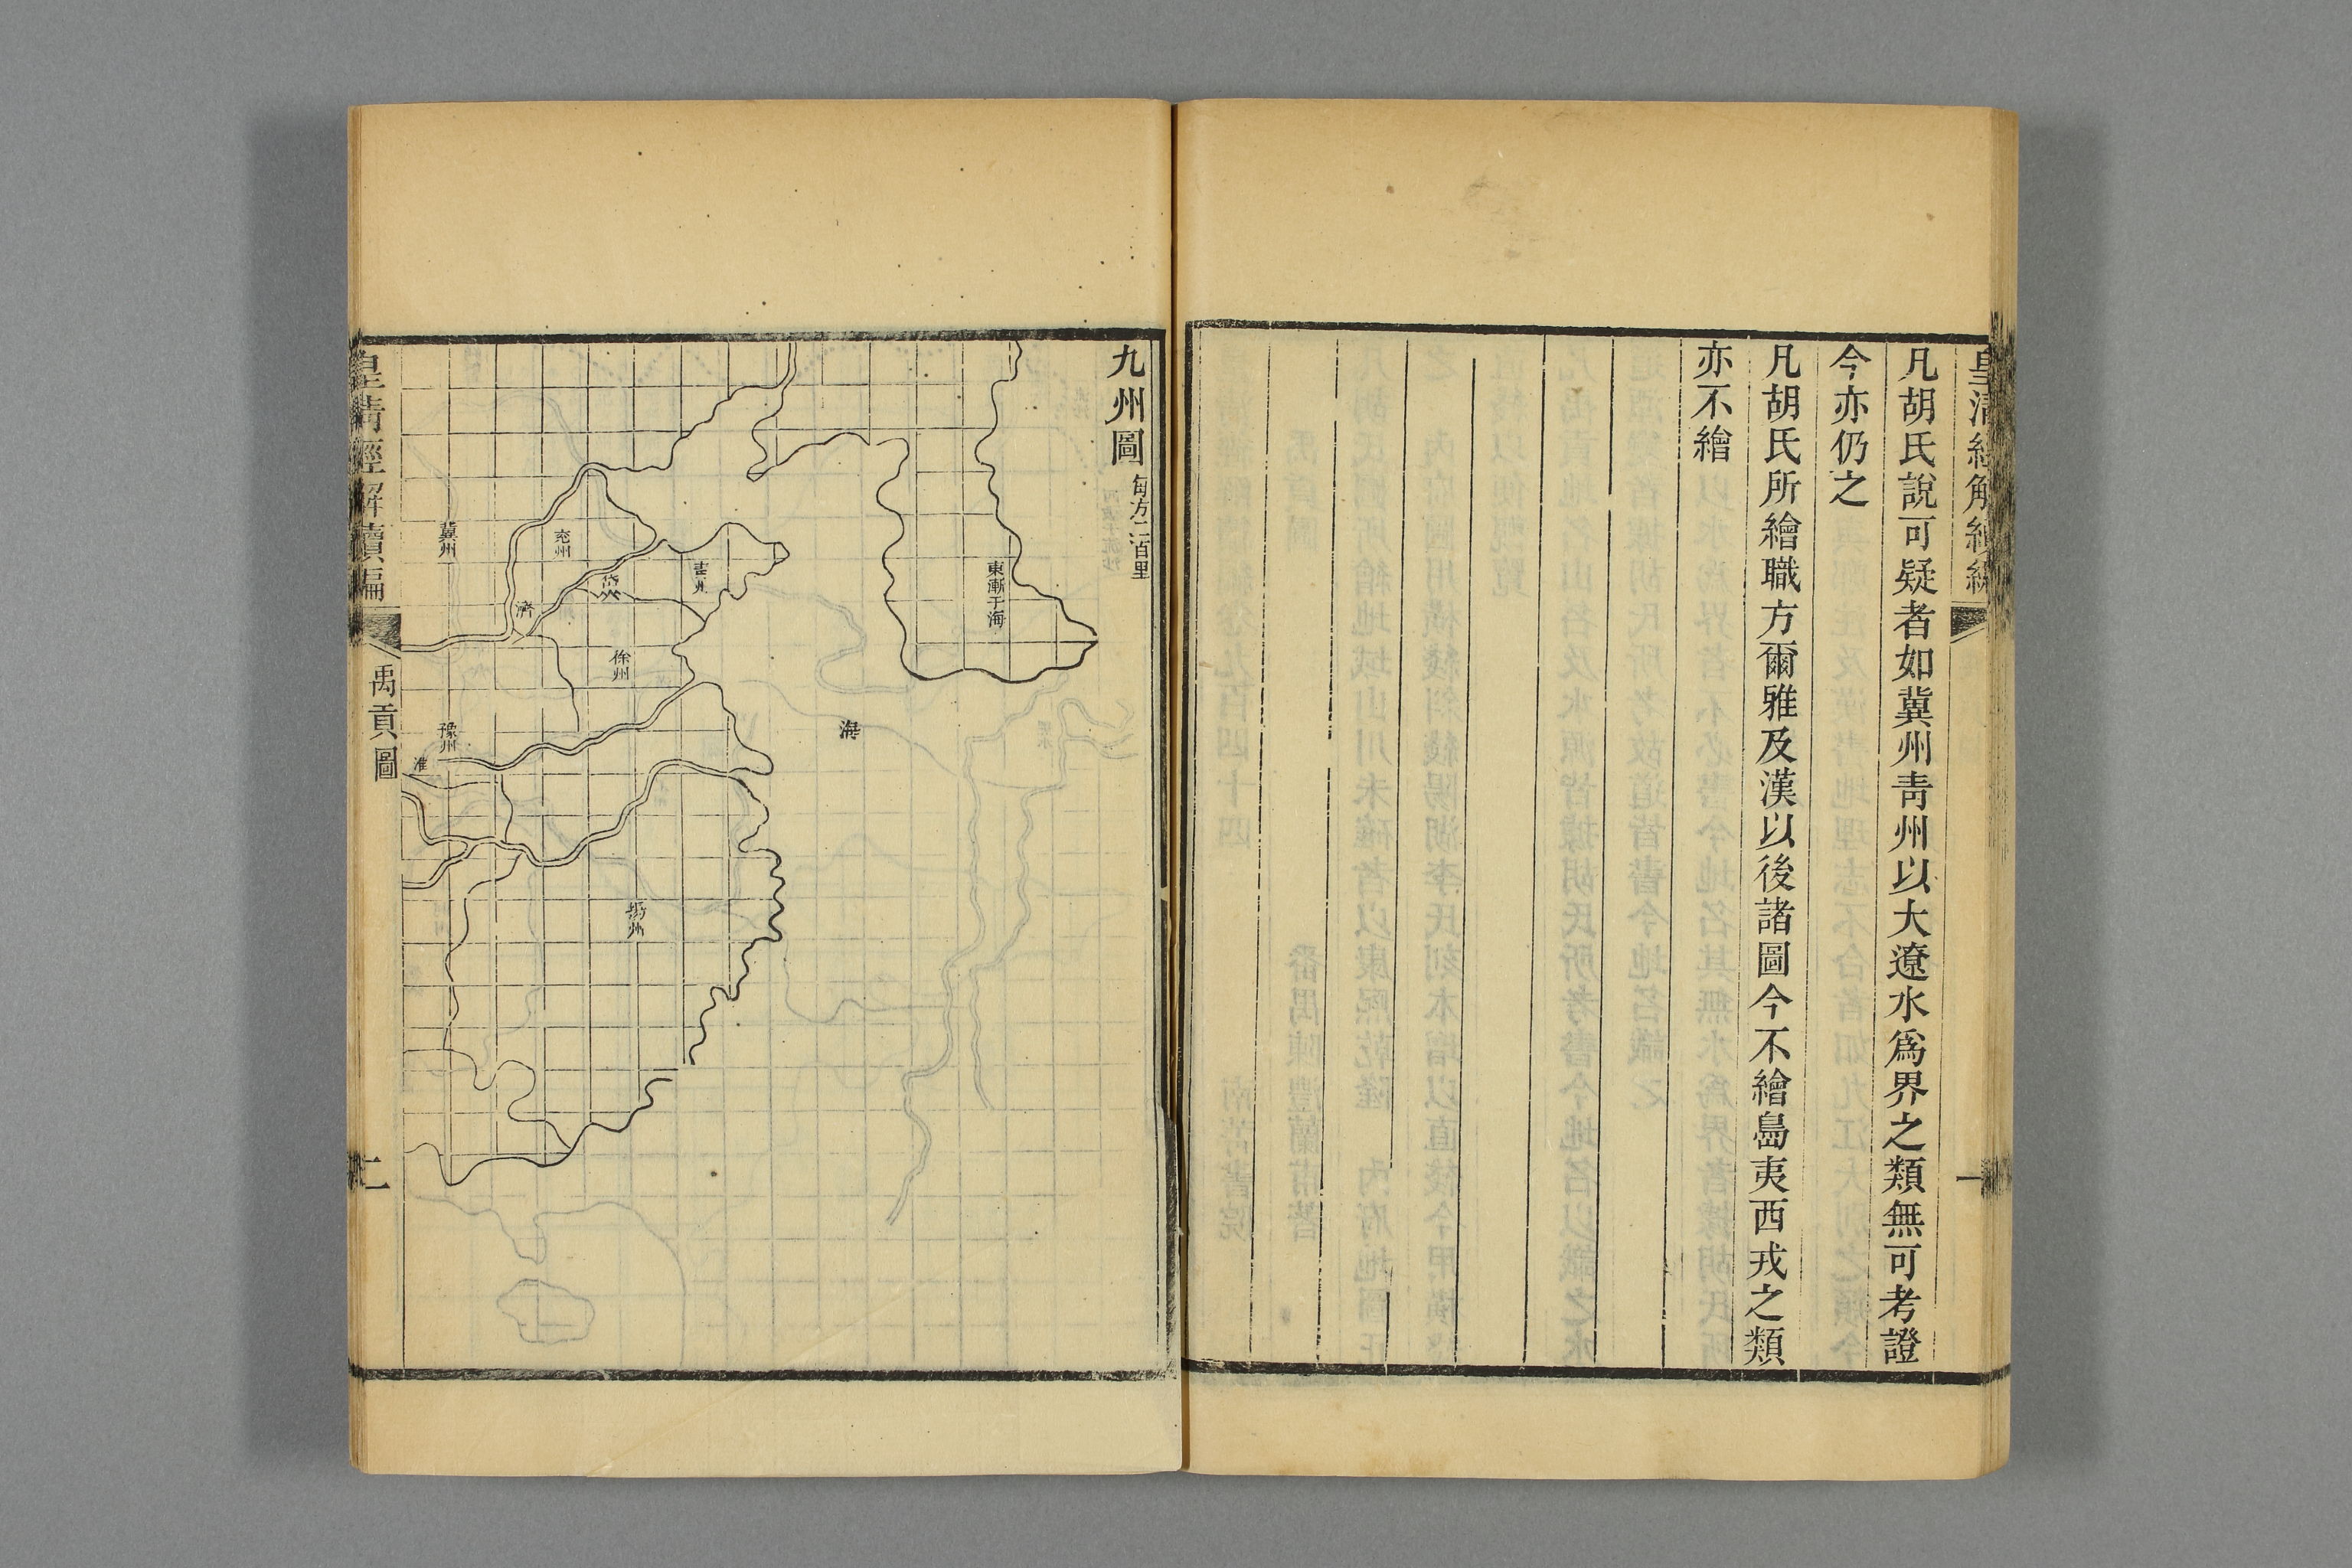 皇清經解續編
一
凡胡氏說可疑者如冀州靑州以大遼水爲界之類無可考證
今亦仍之
凡胡氏所繪職方爾雅及漢以後諸圖今不繪島夷西戎之類
亦不繪
九州圖
每方二百里
東漸于海
海
靑州
徐州
揚州
岱
兗州
濟
冀州
豫州
淮
皇清經解續編
禹貢圖
二